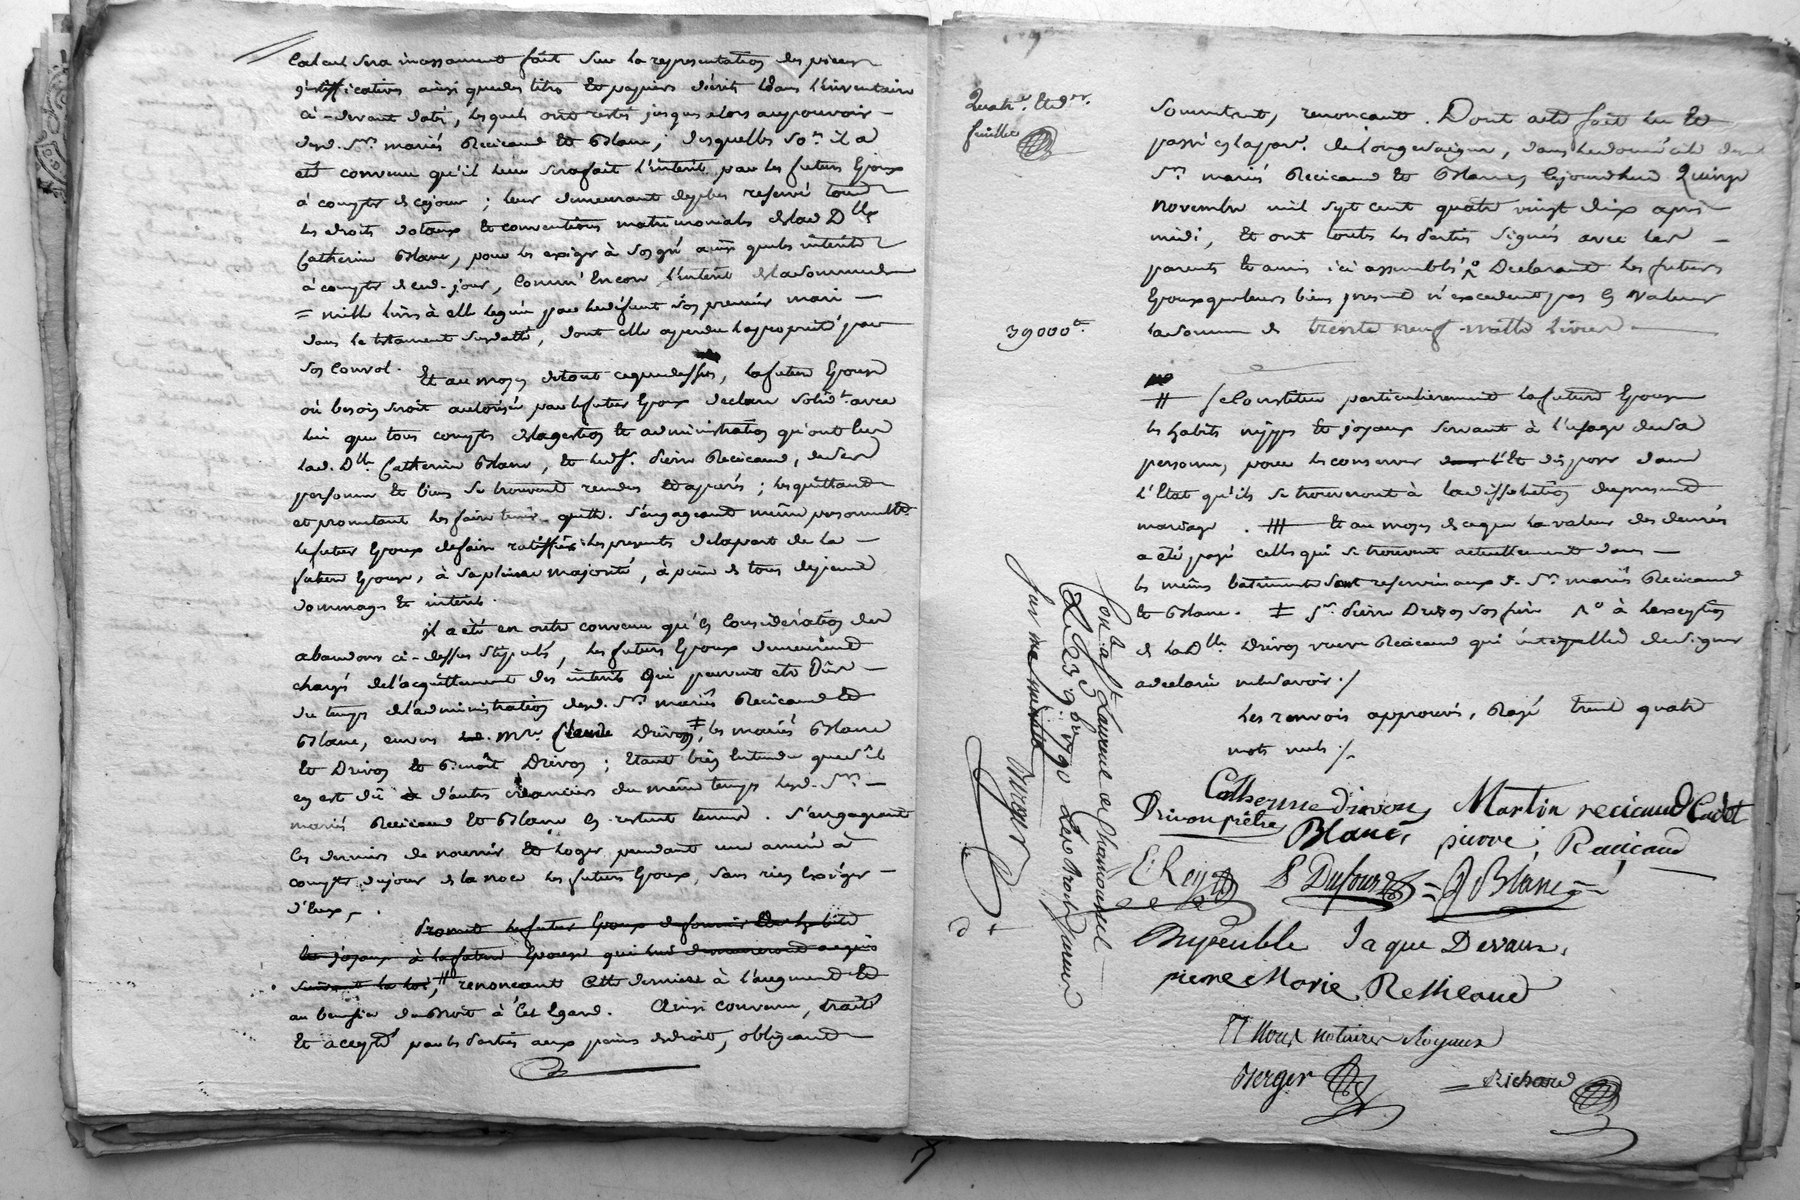 Calcul sera incessament fait sur la representation des pieces
justifficatives ainsi que des titres et papiers décrits dans l'inventaire
ci-devant daté, lesquels ont restés jusques alors au pouvoir
desd. Srs. mariés Recicaud et Blanc; desquelles so.es il a
été convenu qu'il leur sera fait l'interit par les futurs Epoux
à compter de ce jour; leur demeurant de plus reservé tous
les droits dotaux et conventions matrimoniales de lad. Dlle
Catherine Blanc, pour les exiger à son gré ainsi que les interits
à compter de cud. jour, comm' Encore l'interit de la somme de
= mille livres à elle leguée par led. défunt son premier mari
dans le testament susdatté, dont elle a perdu la proprieté par
son convol. Et au moyen de tout ce que dessus, la future Epouse
où besoin seroit autorisée par le futur Epoux declare solid.t avec
lui que tous comptes de la gestion et administration qu'ont eue
lad. Dlle. Catherine Blanc, et led. Sr. Pierre Recicaud, de ses
personne et biens se trouvent rendus et apurés; les quittant
et promettant les faire tenir quitte. S'engageant même personnellt.
le futur Epoux de faire ratiffier les presentes de la part de la
future Epouse, à sa pleine majorité, à peine de tous depens
dommages et interits.
Il a été en outre convenu qu'en considération des
abandons ci-dessus stipulés, les futurs Epoux demeurent
chargés de l'acquittement des interits qui peuvent etre dûs
du temps de l'administration desd. Srs. mariés Recicaud et
Blanc, envers Mre. Claude Drivon ‡, les mariés Blanc
et Drivon et Benoît Drivon; Etant bien entendu que s'il
en est dû à d'autres créanciers du même temps lesd. Srs.
mariés Recicaud et Blanc en restent tenus. S'engageant
ces derniers de nourrir et loger pendant une année à
compter du jour de la noce les futurs Epoux, sans rien exiger
d'eux.
Promet le futur Epoux de fournir des habits
et joyaux à la future Epouse qui lui demeureront acquis
suivant la loi, # renonceant cette derniere à l'augment et
au benefice du droit à cet égard. Ainsi convenu, traité
et accepté par les Parties aux peines de droit, obligeant
Quatr.e et der.
feuille
Soumettant, renonceant. Dont acte fait lu et
passé en la par. de Longessaigne, dans le domicile desd.
Srs. mariés Recicaud et Blanc, cejourdhui Quinze
novembre mil sept cent quatre vingt dix après
midi, et ont toutes les Parties signés avec leurs
parents et amis ici assemblés. Declarant les futurs
Epoux que leurs biens presents n'excedent pas en valeur
39000tt.
la somme de trente neuf mille livres
# Se constitue particulierement la future Epouse
les habits nippes et joyaux servant à l'usage de sa
personne, pour les conserver et disposer dans
l'Etat qu'ils se trouveront à la dissolution du present
mariage. ⧻ et au moyen de ce que la valeur des denrées
a été payé celles qui se trouvent actuellement dans
les mêmes batiments sont reservées auxd. Srs. mariés Recicaud
et Blanc. ‡ Sr. Pierre Drivon son frere à l'exception
de la Dlle. Drivon veuve Recicaud qui interpellée de signer
a declaré ne le savoir ./
Les renvois approuvés, Rayé trente quatre
mots nuls ./.
Contlé. à St. Laurent de Chamousset
Le 23 9bre. 1790
Sur ma minute Berger
Catherine Drivon Martin recicaud Cadet
Drivon prêtre Blanc, pierre Recicaud
C. Rey P. Dufour J Blanc
Jaque Devaux
pierre Marie Relhiaud
Nous notaires Royaux
Berger Richard